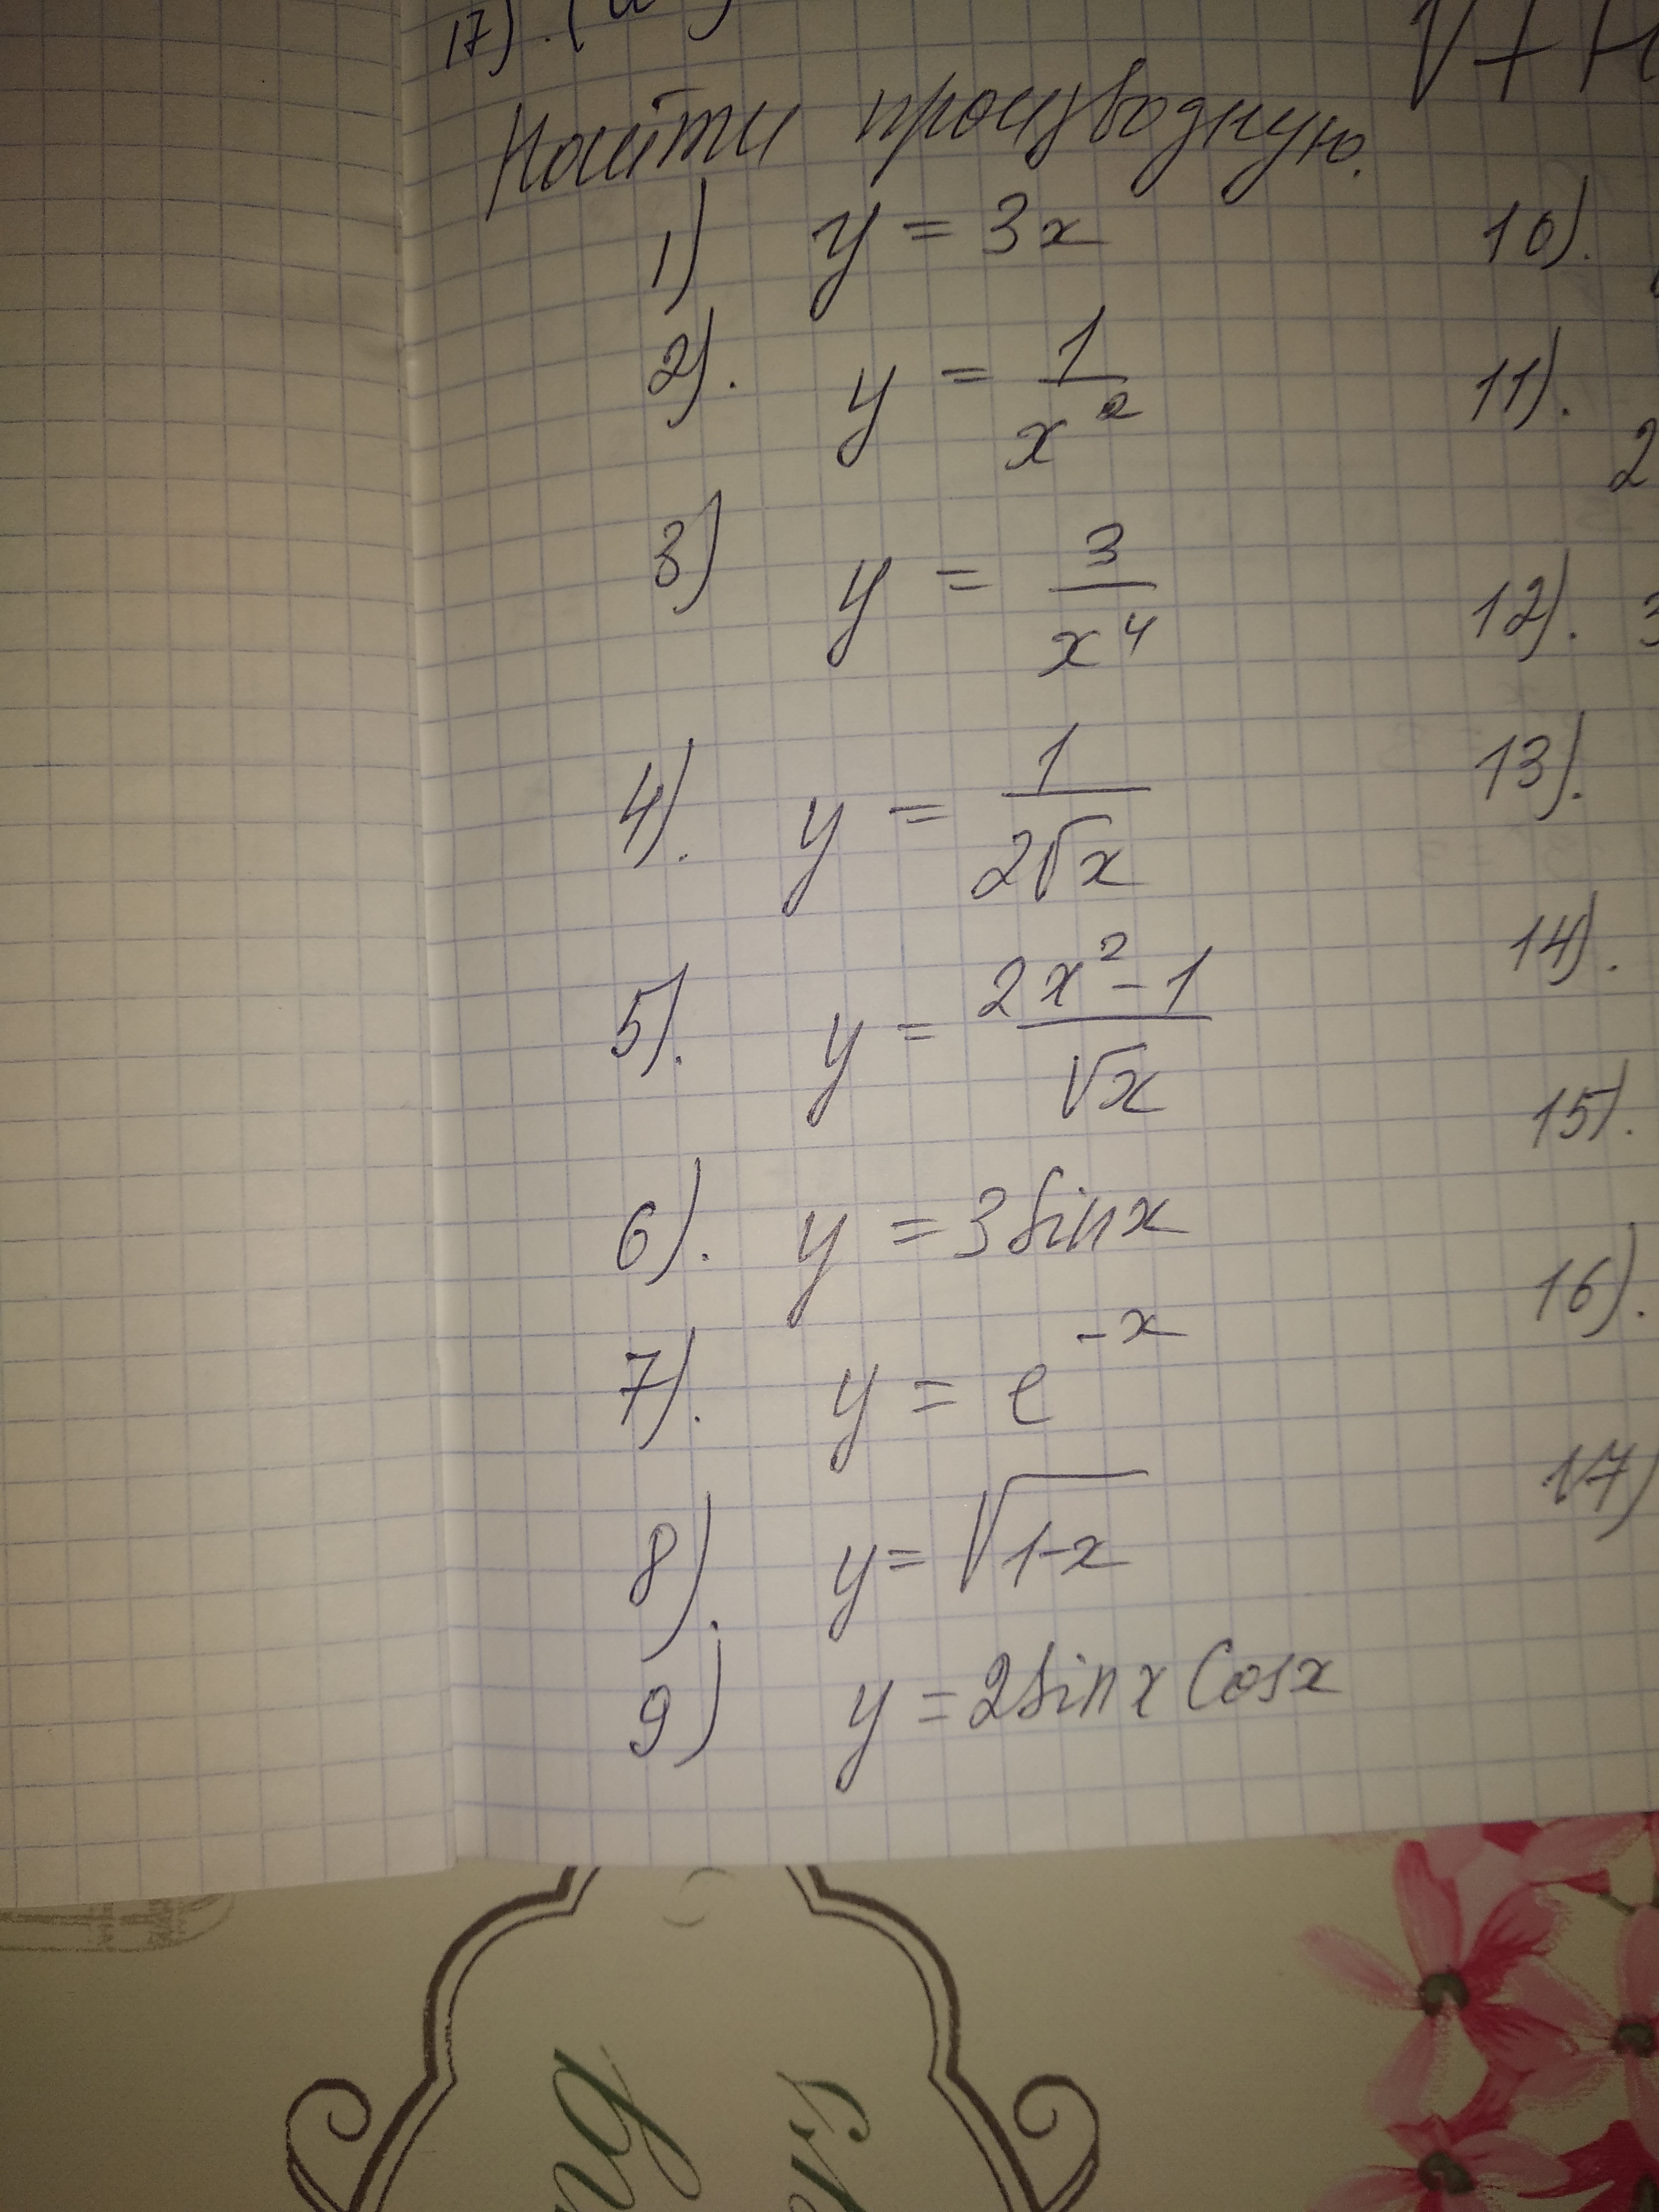 17).
Найти производную.
1) y = 3x
2). y = 1/x²
3) y = 3/x⁴
4). y = 1/(2√x)
5). y = (2x² - 1)/√x
6). y = 3sinx
7). y = e^(-x)
8). y = √(1-x)
9) y = 2sinx Cosx
10).
11).
2
12). 3
13).
14).
15).
16).
17)